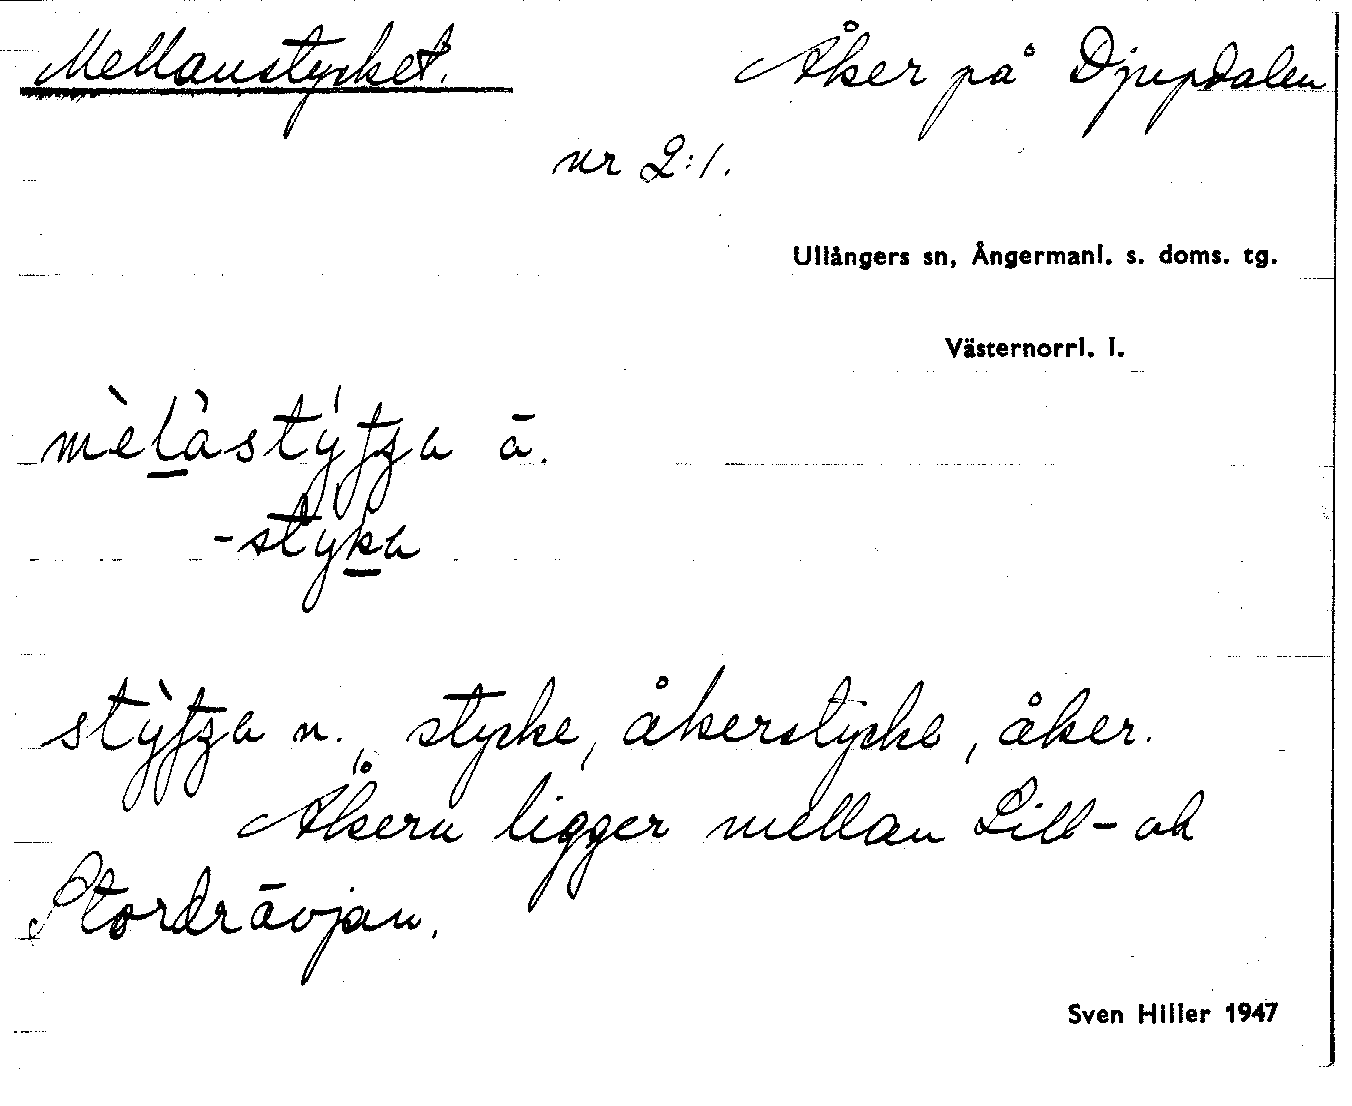 Mellanstycket. Åker på Djupdalen
nr 2:1.
Ullångers sn, Ångermanl. s. doms. tg.
Västernorrl. l.
-styka
n., stycke, åkerstycke, åker.
Åkern ligger mellan Lill- och
Stordrävjan.
Sven Hiller 1947